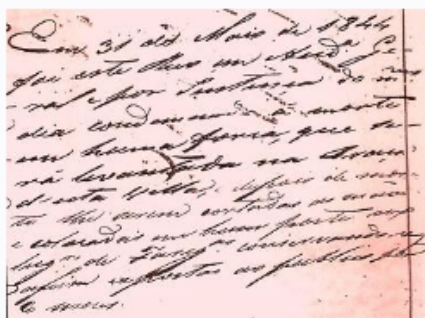 Em 31 de Maio de 1844
foi este Réo em Aud.ª Ge-
ral e por Justiça do m
dia condemnado á morte
em huma forca, que se-
rá levantada na Praça
d'esta Villa, depois de mor-
to lhe serem cortadas as mãos
e colocadas em hum poste no
lugar de
expostas ao publico por
6 meses.